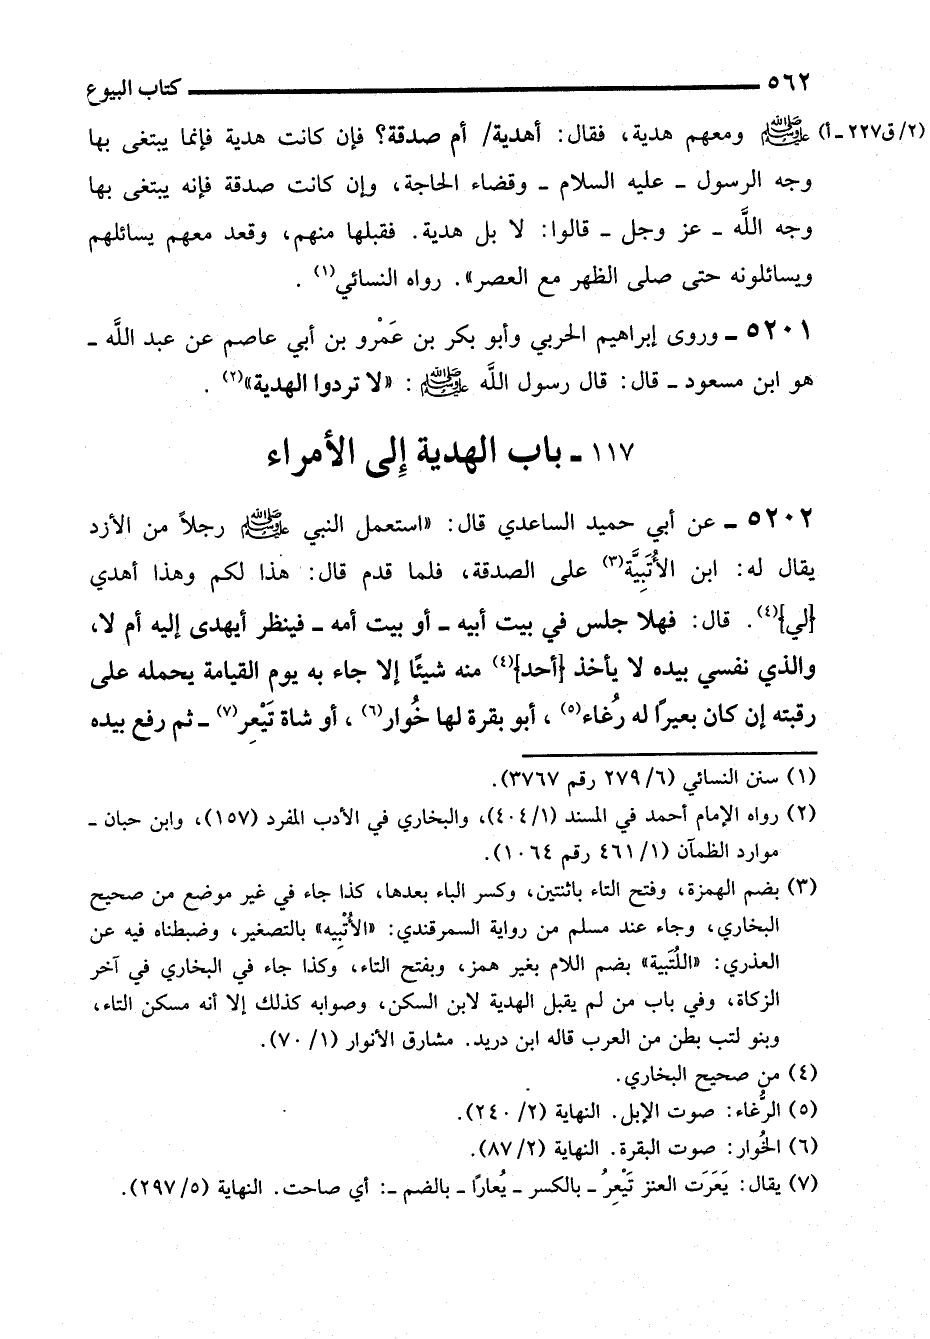 ٥٦٢ كتاب البيوع
(٢/ق٢٢٧ ـ أ) ﷺ ومعهم هدية، فقال: أهدية/ أم صدقة؟ فإن كانت هدية فإنما يبتغى بها
وجه الرسول ـ عليه السلام ـ وقضاء الحاجة، وإن كانت صدقة فإنه يبتغى بها
وجه اللَّه ـ عز وجل ـ قالوا: لا بل هدية. فقبلها منهم، وقعد معهم يسائلهم
ويسائلونه حتى صلى الظهر مع العصر». رواه النسائي(١) .
٥٢٠١ ـ وروى إبراهيم الحربي وأبو بكر بن عَمْرو بن أبي عاصم عن عبد اللَّه ـ
هو ابن مسعود ـ قال: قال رسول اللَّه ﷺ : «لا تردوا الهدية»(٢) .
١١٧ ـ باب الهدية إلى الأمراء
٥٢٠٢ ـ عن أبي حميد الساعدي قال: «استعمل النبي ﷺ رجلاً من الأزد
يقال له: ابن الأُتَبِيَّة(٣) على الصدقة، فلما قدم قال: هذا لكم وهذا أهدي
[لي](٤). قال: فهلا جلس في بيت أبيه ـ أو بيت أمه ـ فينظر أيهدى إليه أم لا،
والذي نفسي بيده لا يأخذ [أحد](٤) منه شيئًا إلا جاء به يوم القيامة يحمله على
رقبته إن كان بعيرًا له رُغاء(٥) ، أبو بقرة لها خُوار(٦) ، أو شاة تَيْعِر(٧) ـ ثم رفع بيده
(١) سنن النسائي (٦/ ٢٧٩ رقم ٣٧٦٧).
(٢) رواه الإمام أحمد في المسند (١/ ٤٠٤)، والبخاري في الأدب المفرد (١٥٧)، وابن حبان ـ
موارد الظمآن (١/ ٤٦١ رقم ١٠٦٤).
(٣) بضم الهمزة، وفتح التاء باثنتين، وكسر الباء بعدها، كذا جاء في غير موضع من صحيح
البخاري، وجاء عند مسلم من رواية السمرقندي: «الأُتْبِيه» بالتصغير، وضبطناه فيه عن
العذري: «اللُتَبية» بضم اللام بغير همز، وبفتح التاء، وكذا جاء في البخاري في آخر
الزكاة، وفي باب من لم يقبل الهدية لابن السكن، وصوابه كذلك إلا أنه مسكن التاء،
وبنو لتب بطن من العرب قاله ابن دريد. مشارق الأنوار (١/ ٧٠).
(٤) من صحيح البخاري.
(٥) الرُّغاء: صوت الإبل. النهاية (٢/ ٢٤٠).
(٦) الخُوار: صوت البقرة. النهاية (٢/ ٨٧).
(٧) يقال: يَعَرَت العنز تَيْعِرُ ـ بالكسر ـ يُعارًا ـ بالضم ـ: أي صاحت. النهاية (٥/ ٢٩٧).